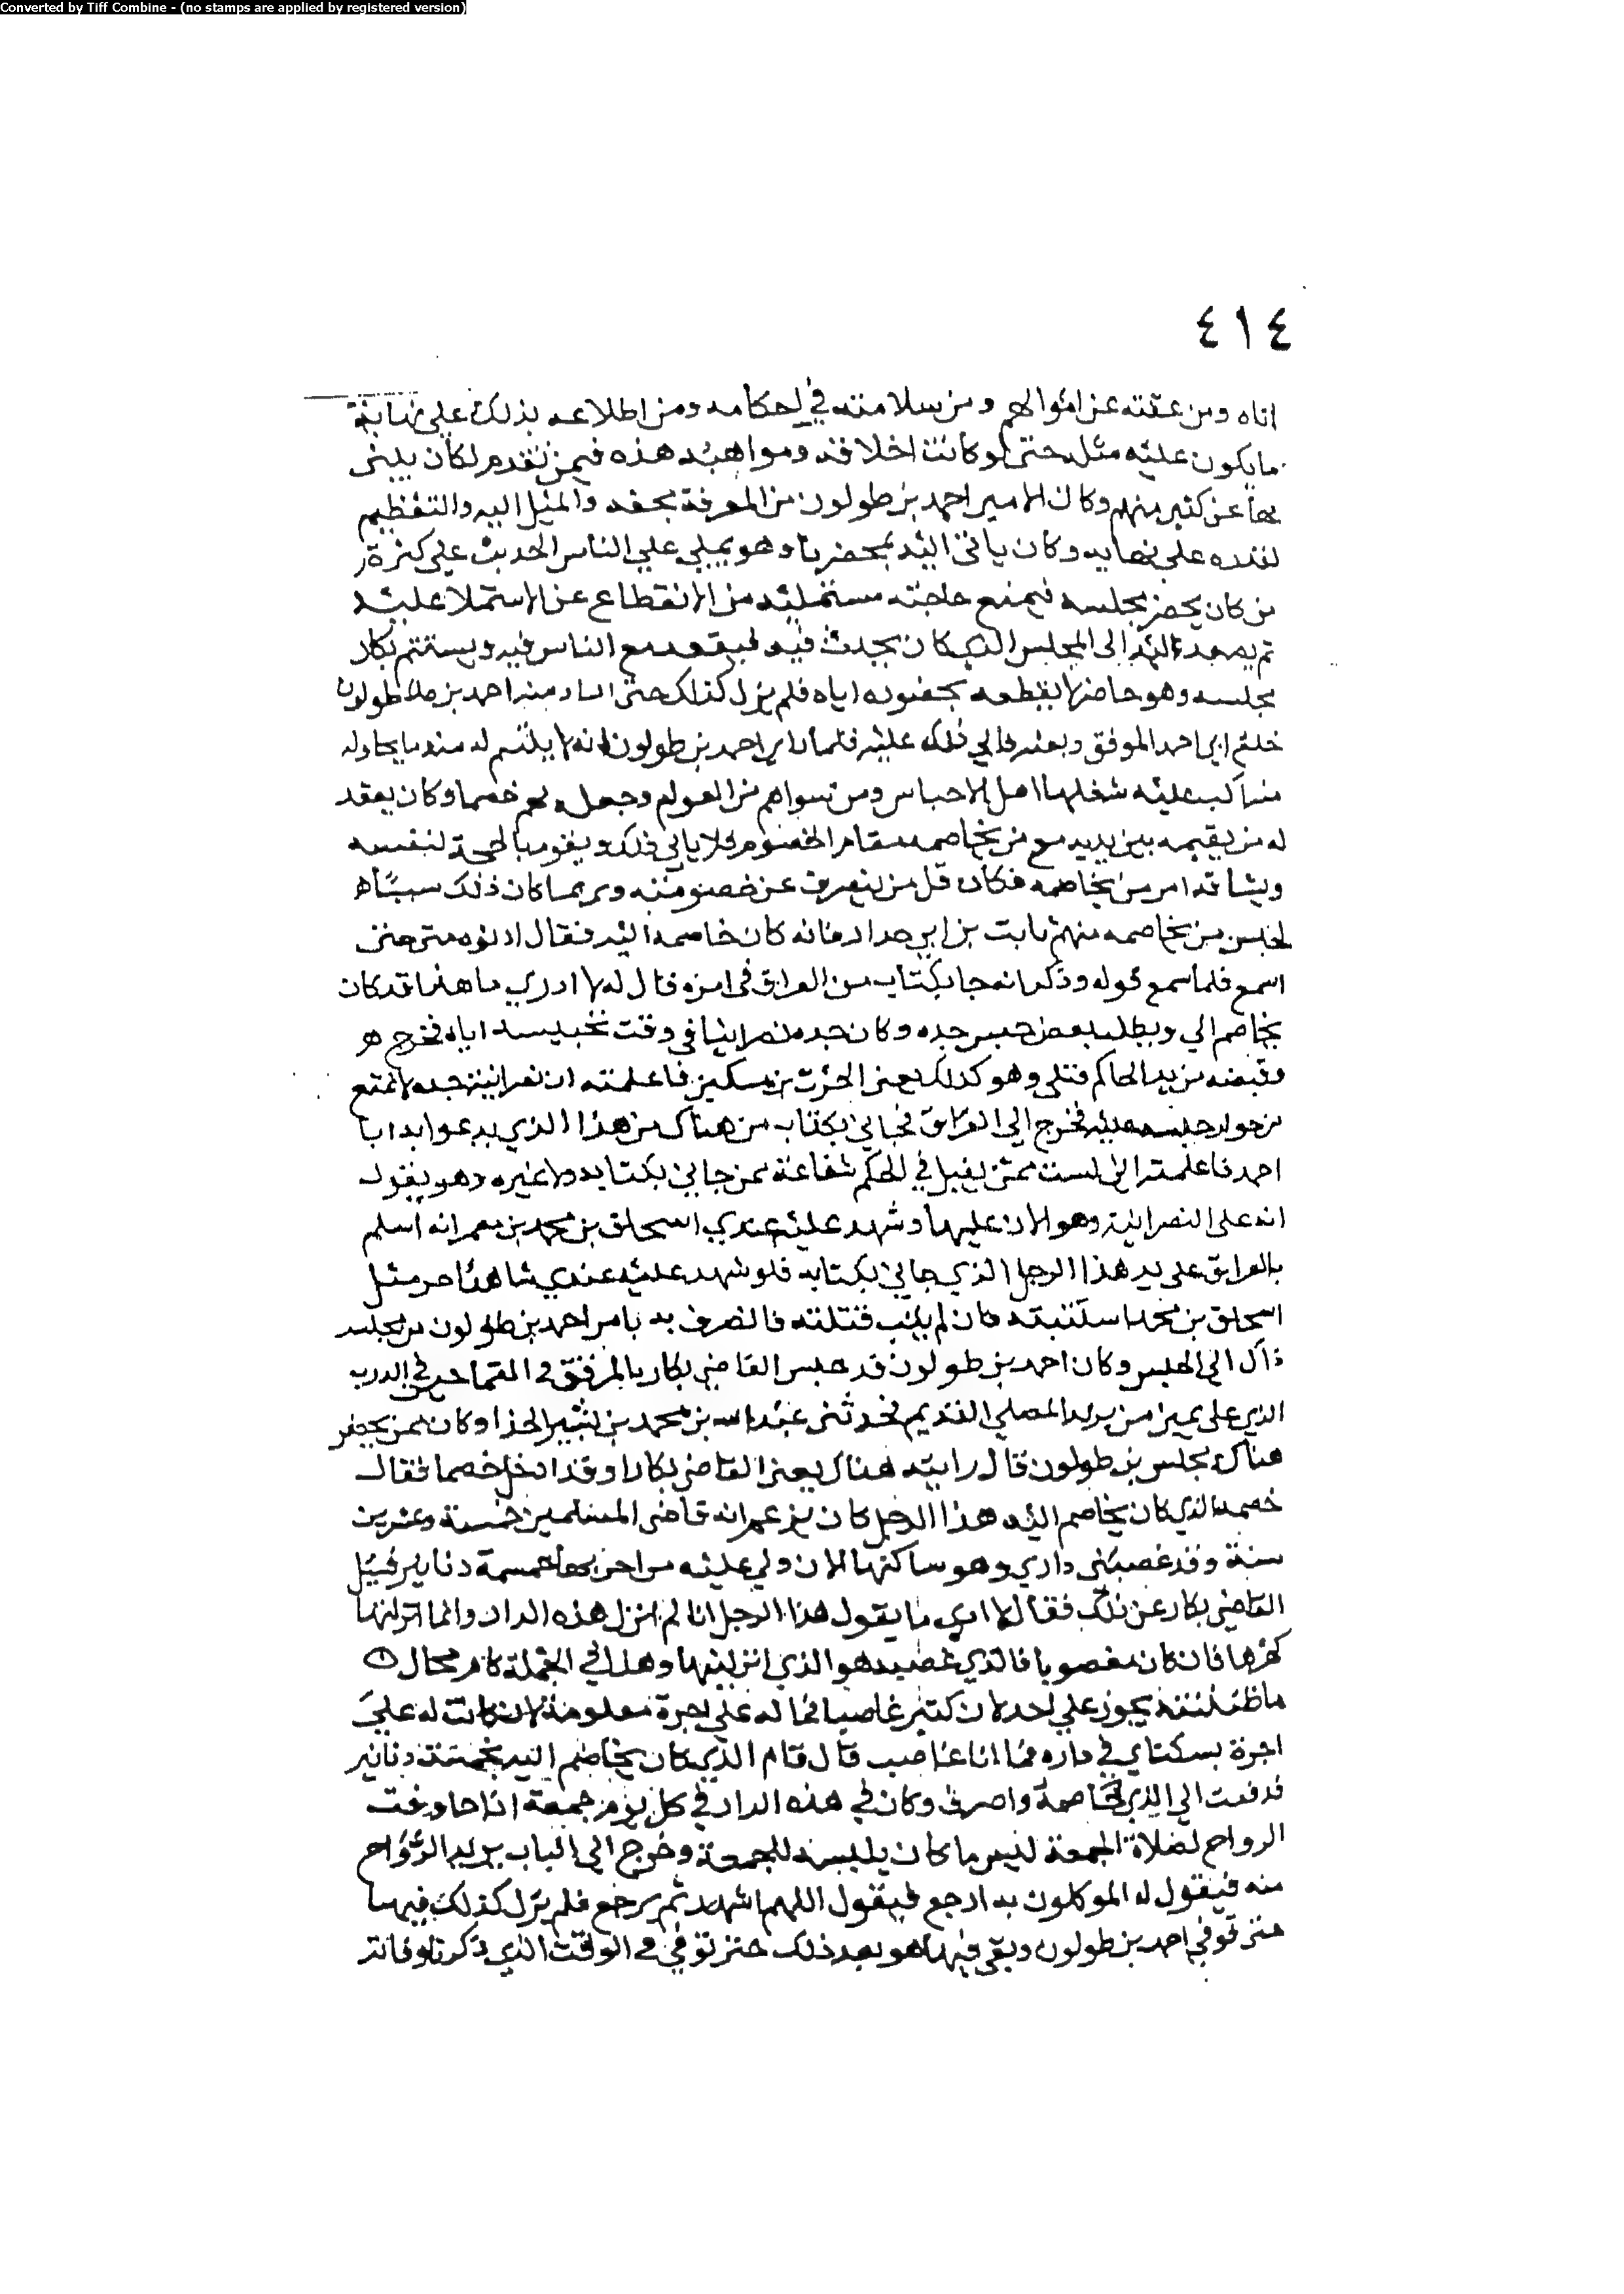 Converted by Tiff Combine - (no stamps are applied by registered version)
٤١٤
اتاه ومن عفته عن اموالهم ومن سلامته في احكامه ومن اطلاعه بذلك على نهاية
ما يكون عليه مثله حتى لو كانت اخلاقه ومواهبه هذه فيمن تقدم لكان يلني
بها عن كثير منهم وكان الامير احمد بن طولون من المعرفة بحقه والميل اليه والتعظيم
لقدره على نهايه وكان ياتي اليه بمحضرنا وهو يملي على الناس الحديث على كثرة
من كان يحضر مجلسه فيمنع حاجبه مستمليه من الانقطاع عن الاستملا عليه
ثم يصعد اليه الى المجلس الذي كان يحدث فيه فيقعد مع الناس فيه ويستتم بكار
مجلسه وهو حاضر لا يقطعه بحضوره اياه فلم يزل كذلك حتى اراد منه احمد بن طولون
خلع ابي احمد الموفق ولعنه فابي ذلك عليه فلما راي احمد بن طولون انه لا يلتئم له منه ما يحاوله
الب عليه سفها اهل الاحباس ومن سواهم من العوام وجعله لهم خصما وكان يعقد
له من يقيمه بين يديه مع من يخاصمه مقام الخصوم فلا يابى ذلك ويقوم بالحجة لنفسه
من يخاصمه فكان قل من ينصرف عن خصومته وربما كان ذلك سببا
لحبس من يخاصمه منهم ثابت بن ابي حداد فانه كان خاصمه اليه فقال ادنوه مني حتى
اسمع فلما سمع قوله وذكر انه جا بكتاب من العراق في امره قال له لا ادري ما هذا قد كان
يخاصم الي ويطلب بعض حبس جده وكان جده نصرانيا في وقت تحبيسه اياه فخرج
وقبضه من يد الحاكم قبلي وهو كذلك يعني الحرث بن مسكين فاعلمته ان نصرانية جده لا تمنع
من جواز حبسه عليه فخرج الى العراق فجاني بكتاب من هناك من هذا الذي يدعوا به ابا
احمد فاعلمته اني لست ممن يقبل في الحكم شفاعة ممن جاني بكتابه ولا غيره وهو يقول
انه على النصرانية وهو الان عليها وشهد عليه عندي اسحاق بن محمد بن معمر انه اسلم
بالعراق على يد هذا الرجل الذي جاني بكتابه فلو شهد عليه عندي شاهد اخر مثل
اسحاق بن محمد استتبته فان لم يتب قتلته فانصرف به بامر احمد بن طولون من مجلسه
ذاك الى الحبس وكان احمد بن طولون قد حبس القاضي بكار بالمرفق في القماحين في الدرب
الذي على يمين من يريد المصلى القديم فحدثني عبد الله بن محمد بن الحذا وكان ممن يحضر
هناك مجلس بن طولون قال رايته هناك يعني القاضي بكارا وقد ادخل خصما فقال
خصمه الذي كان يخاصم اليه هذا الرجل كان يزعم انه قاضي المسلمين خمسة وعشرين
سنة وقد غصبني داري وهو ساكنها الان ولي عليه من اجرتها خمسة دنانير فسئل
القاضي بكار عن ذلك فقال لا ادري ما يقول هذا الرجل انا لم انزل هذه الدار وانما انزلتها
كرها فان كان مغصوبا فالذي غصبه هو الذي انزلنيها وهذا في الجملة كلام محال
ما ظننته يجوز على احد لان كنت غاصبا فما له علي اجرة معلومة لان كانت له علي
اجرة بسكناي في داره فما انا غاصب قال قام الذي كان يخاصم اليه بخمسة دنانير
فدفعت الى الذي خاصمه واصرف وكان في هذه الدار في كل يوم جمعة اذا جا وقت
الرواح لصلاة الجمعة لبس ما كان يلبسه للجمعة وخرج الى الباب يريد الرواح
منه فيقول له الموكلون به ارجع فيقول اللهم اشهد ثم يرجع فلم يزل كذلك فيها
حتى توفي احمد بن طولون وبقي فيها هو بعد ذلك حتى توفي في الوقت الذي ذكرنا وفاته